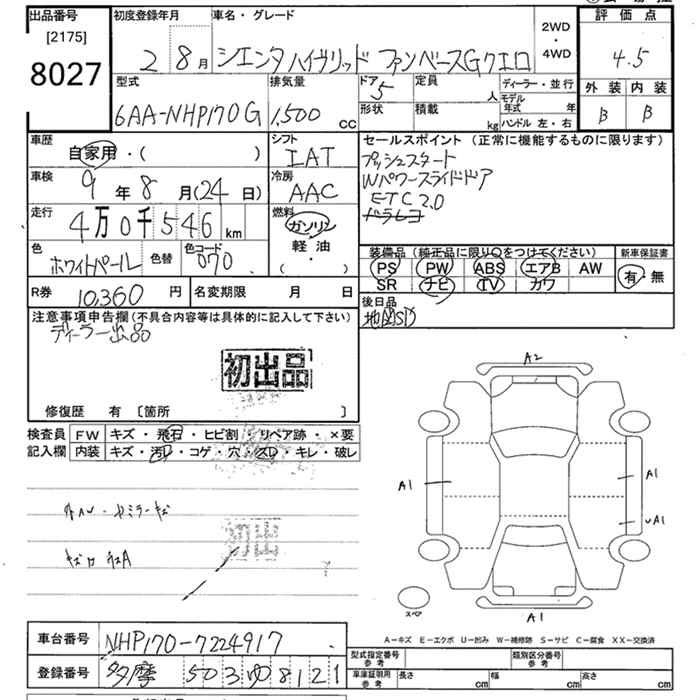 出品番号
[2175]
8027
初度登録年月
2 8月
車名・グレード
シエンタハイブリッド ファンベースGクエロ
2WD
・
4WD
評価点
4.5
外装 内装
B B
型式
6AA-NHP170G
排気量
1,500 cc
ドア
5
形状
定員
人
積載
kg
ディーラー・並行
モデル年式 年
ハンドル 左・右
車歴
自家用・( )
シフト
IAT
車検
9年8月(24日)
冷房
AAC
走行
4万0千546km
燃料
ガソリン
軽油
( ・ )
色
ホワイトパール
色替
色コード
070
R券
10,360円
名変期限 月 日
セールスポイント (正常に機能するものに限ります)
プッシュスタート
Wパワースライドドア
ETC2.0
ドラレコ
装備品 (純正品に限り○をつけてください)
PS PW ABS エアB AW
SR ナビ TV カワ
新車保証書
有・無
後日品
注意事項申告欄 (不具合内容等は具体的に記入して下さい)
ディーラー出品
初出品
修復歴 有 [箇所 ]
検査員
記入欄
FW キズ・飛石・ヒビ割・リペア跡・×要
内装 キズ・汚レ・コゲ・穴・スレ・キレ・破レ
初出
A2
A1
A1
A1
A1
スペア
A-キズ E-エクボ U-凹み W-補修跡 S-サビ C-腐食 XX-交換済
車台番号
NHP170-7224917
登録番号
多摩 503 ゆ 8121
型式指定番号
参考
類別区分番号
参考
車庫証明用
参考
長さ cm 幅 cm 高さ cm